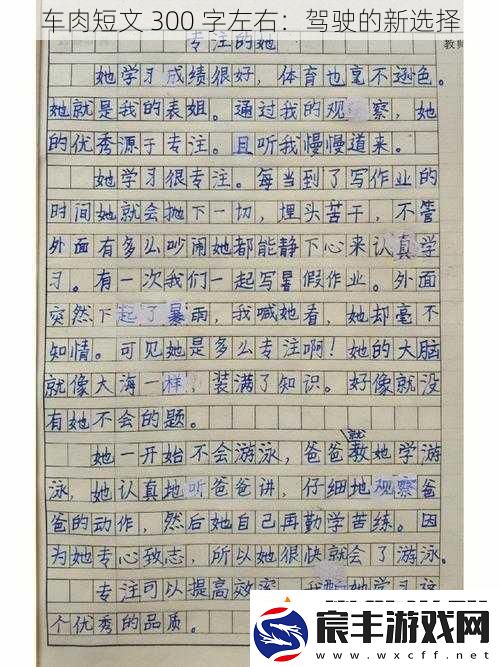 车肉短文 300 字左右：驾驶的新选择
专注的她
教师
她学习成绩很好，体育也毫不逊色。
她就是我的表姐。通过我的观察，她
的优秀源于专注。且听我慢慢道来。
她学习很专注。每当到了写作业的
时间她就会抛下一切，埋头苦干，不管
外面有多么吵闹她都能静下心来认真学
习。有一次我们一起写暑假作业。外面
突然下起了暴雨，我喊她看，她却毫不
知情。可见她是多么专注啊！她的大脑
就像大海一样，装满了知识。好像就没
有她不会的题。
她一开始不会游泳，爸爸就教她学游
泳，她认真地听爸爸讲，仔细地观察爸
爸的动作，然后她自己再勤学苦练。因
为她专心致志，所以她很快就会了游泳。
专注可以提高效率，我 她学习这
个优秀的品质。
宸丰游戏网
www.wxcxcf.com